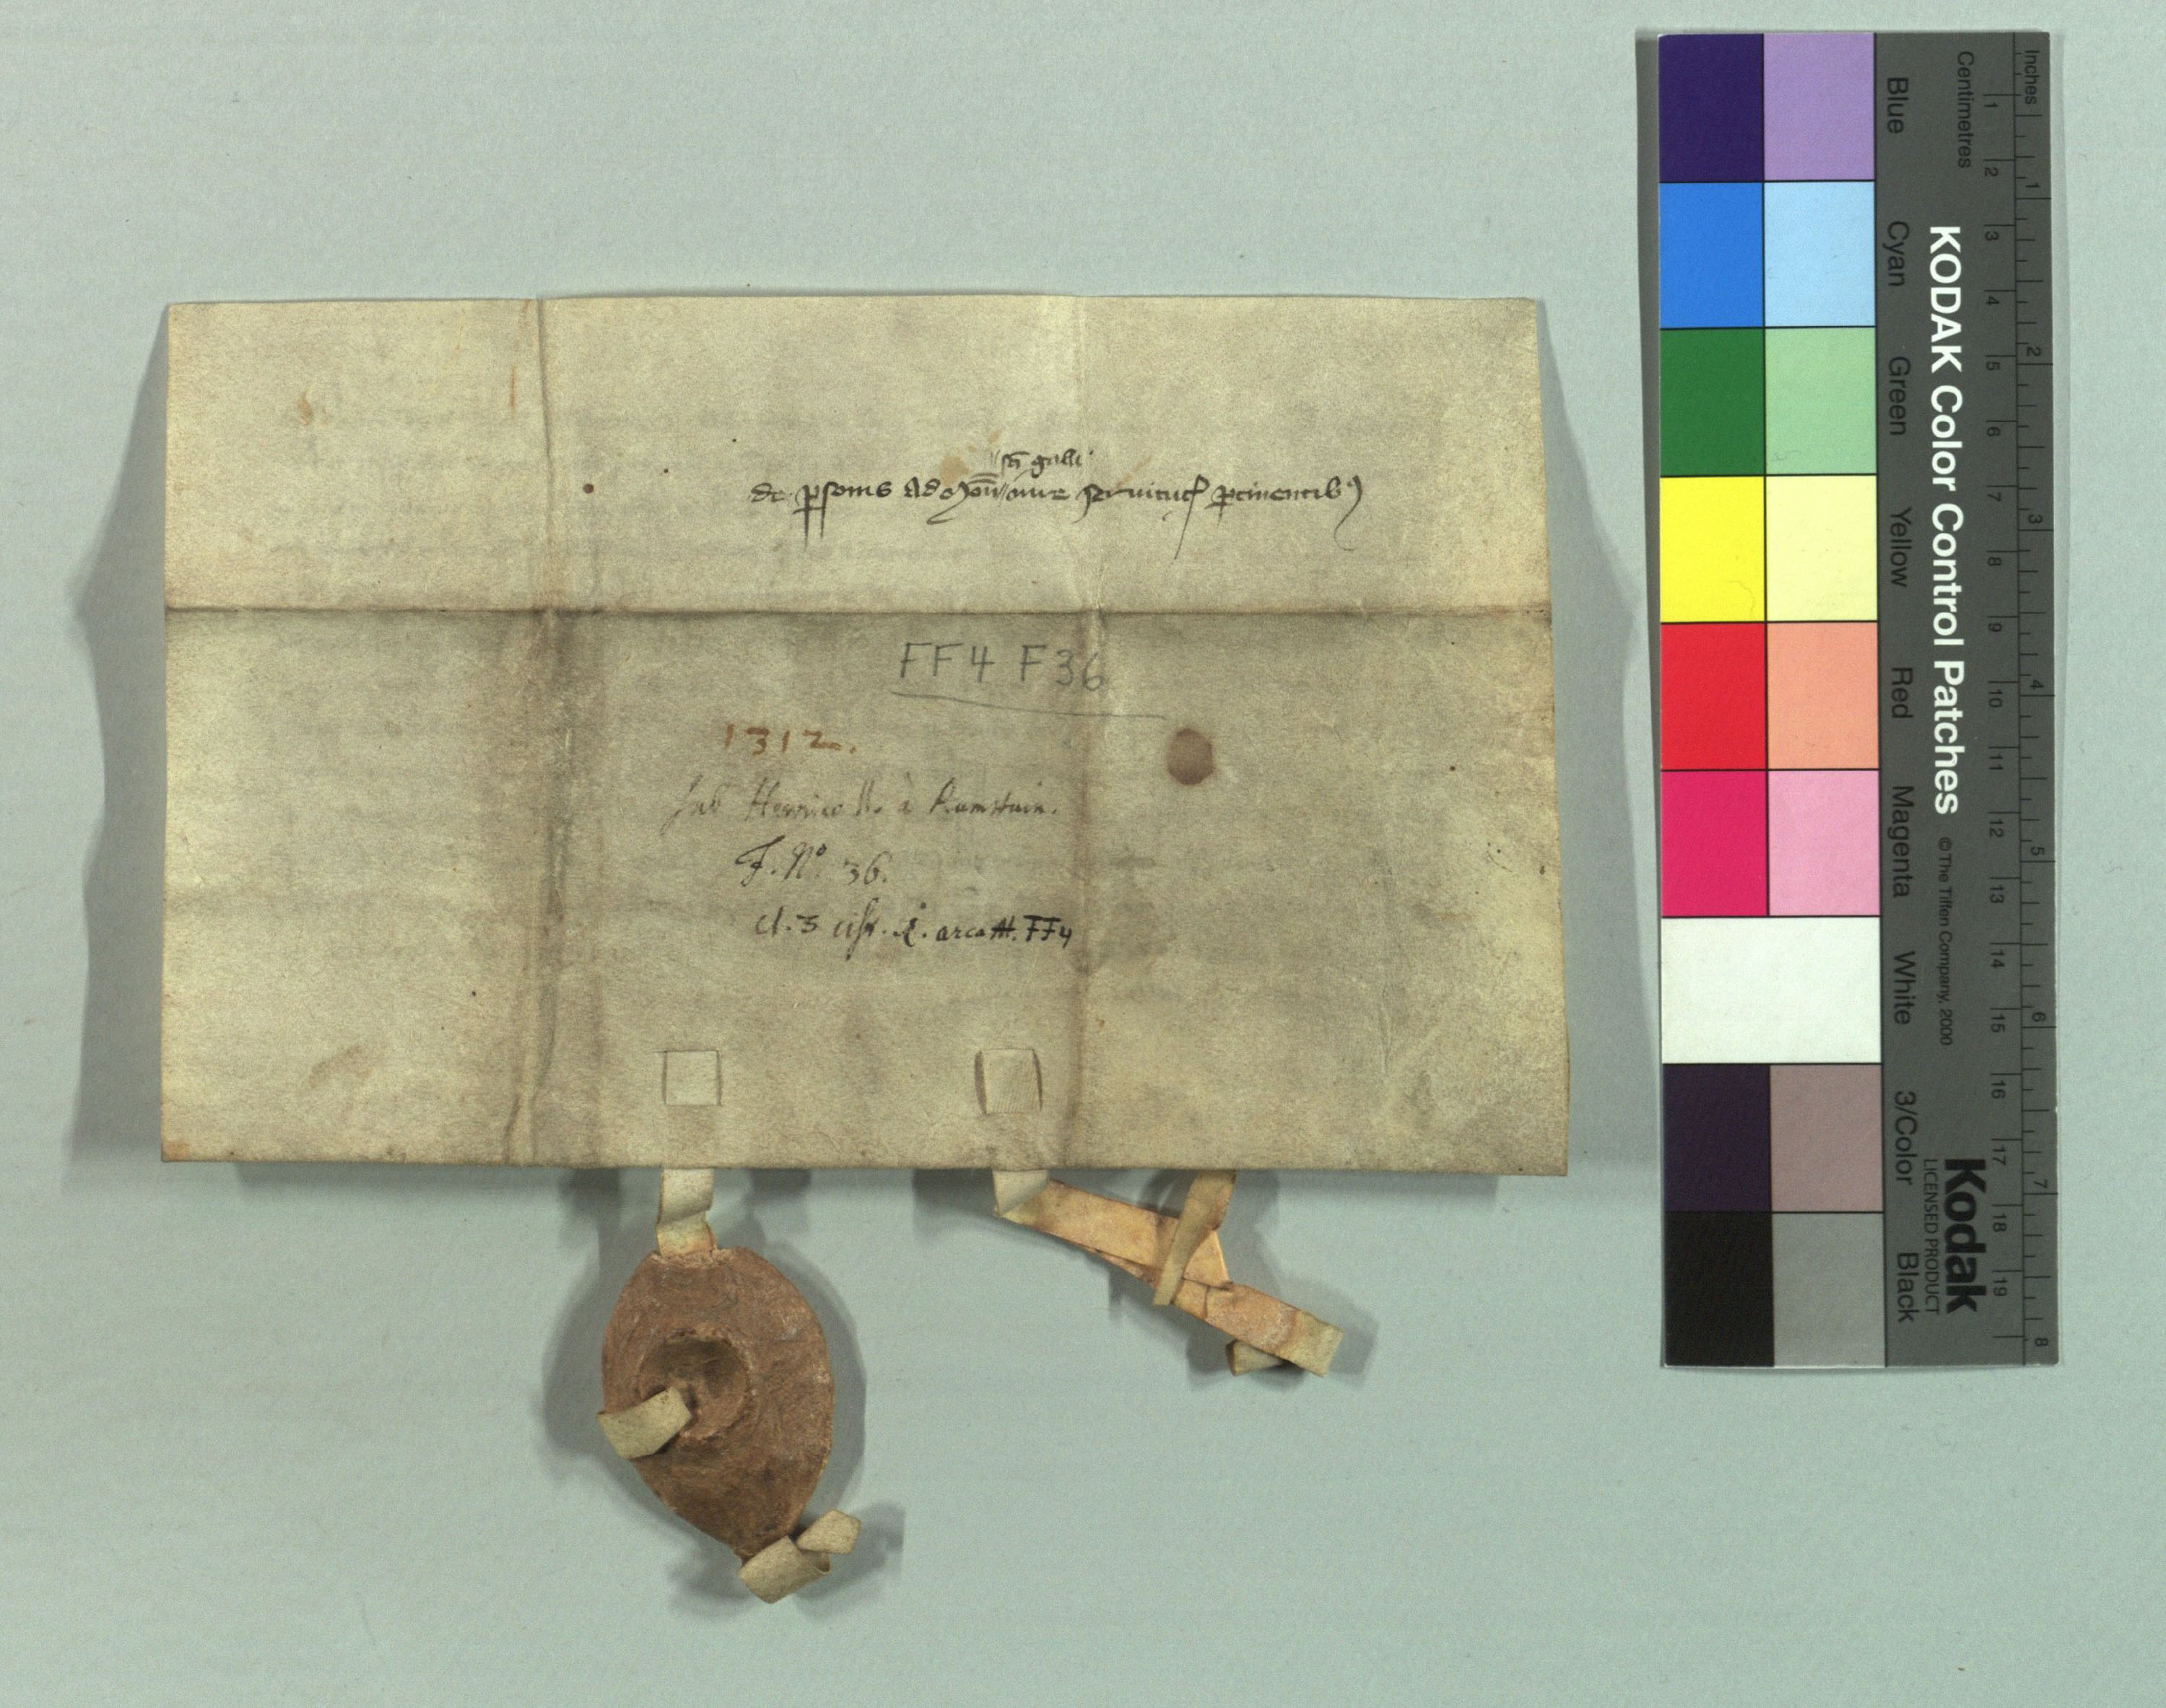 sā galli
de psonis ad Mon iure seruitut ptinentib9
FF4 F36
1312.
sub Henrico II. à Ramstain.
F. Nº 36.
cl. 3 cist. 2. arca A. FF4
Inches
Centimetres
1 2 3 4 5 6 7 8 9 10 11 12 13 14 15 16 17 18 19
1 2 3 4 5 6 7 8
KODAK Color Control Patches
© The Tiffen Company, 2000
Kodak
LICENSED PRODUCT
Blue Cyan Green Yellow Red Magenta White 3/Color Black